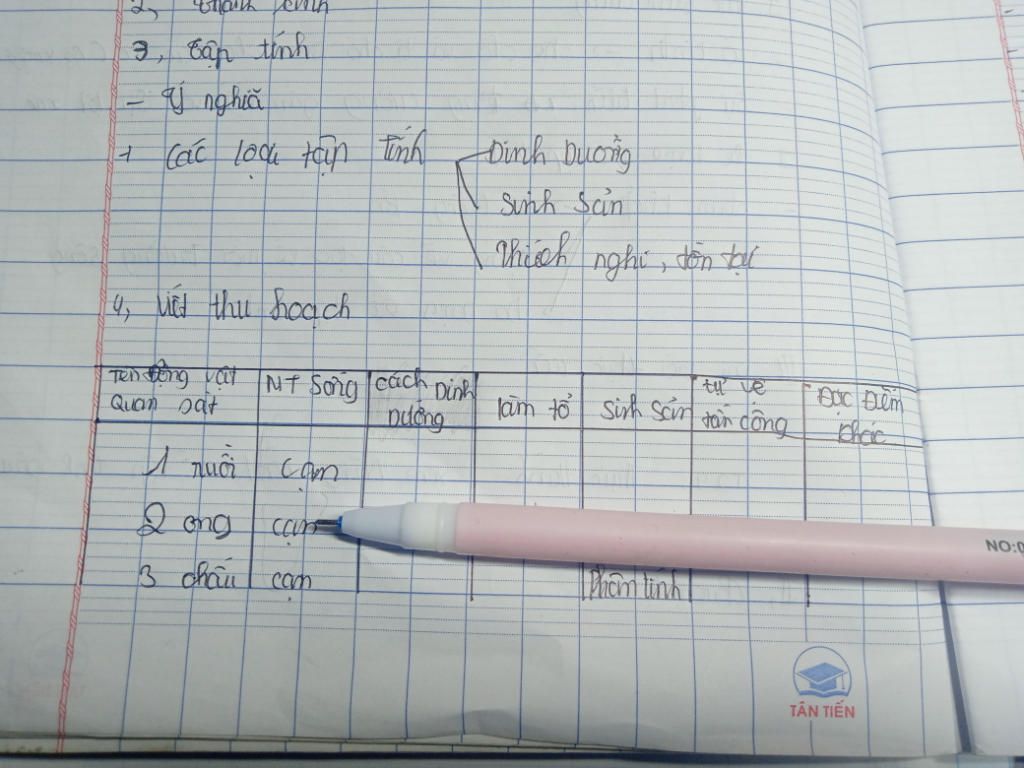 2,
3, tập tính
- Ý nghĩa
+ Các loại tập tính Dinh Dưỡng
Sinh Sản
Thích nghi, tồn tại
4, Viết thu hoạch
Tên động vật quan sát | MT Sống | Cách Dinh Dưỡng | làm tổ | Sinh Sản | tự vệ tấn công | Đặc Điểm khác
1 ruồi | cạn
2 ong | cạn
3 châu | cạn | Phân tính
NO:0
TÂN TIẾN